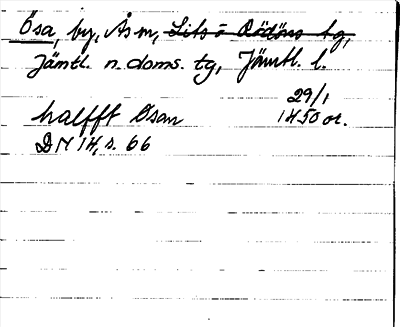 Ösa, by, Ås sn, Lits o Rödöns tg,
Jämtl. n. doms. tg, Jämtl. l.
29/1
halfft Ösan 1450 or.
DN 14, s. 66